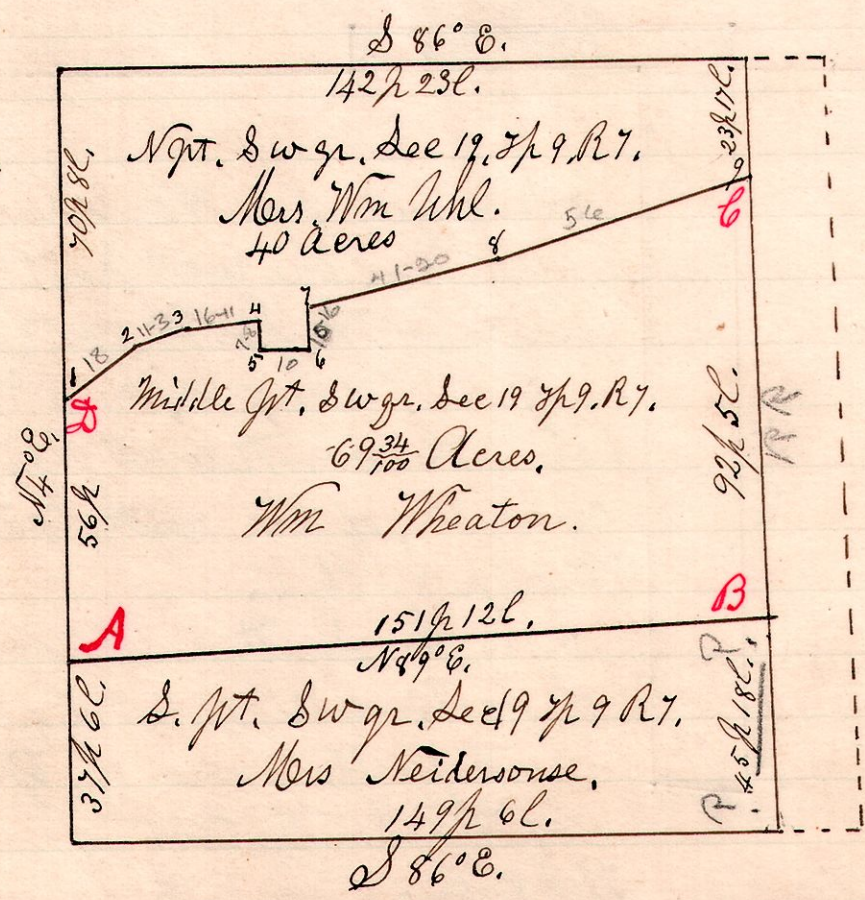 S 86° E.
142p 23l.
23p 17l.
N pt. S w qr. Sec 19, Tp 9, R 7.
Mrs. Wm Uhl.
40 Acres
70p 8l.
9
C
56
8
41-20
7
4
16-11
3
11-3
2
18
1
7-8
5
10
6
D
Middle pt. S w qr. Sec 19 Tp 9. R 7.
69 34/100 Acres.
Wm Wheaton.
92p 5l.
R R
N 4° E.
56p
A
B
151p 12l.
N 89° E.
S. pt. S w qr. Sec 19 Tp 9 R 7.
Mrs Neidersouse.
149p 6l.
37p 6l.
P
45p 18l.
P.
S 86° E.